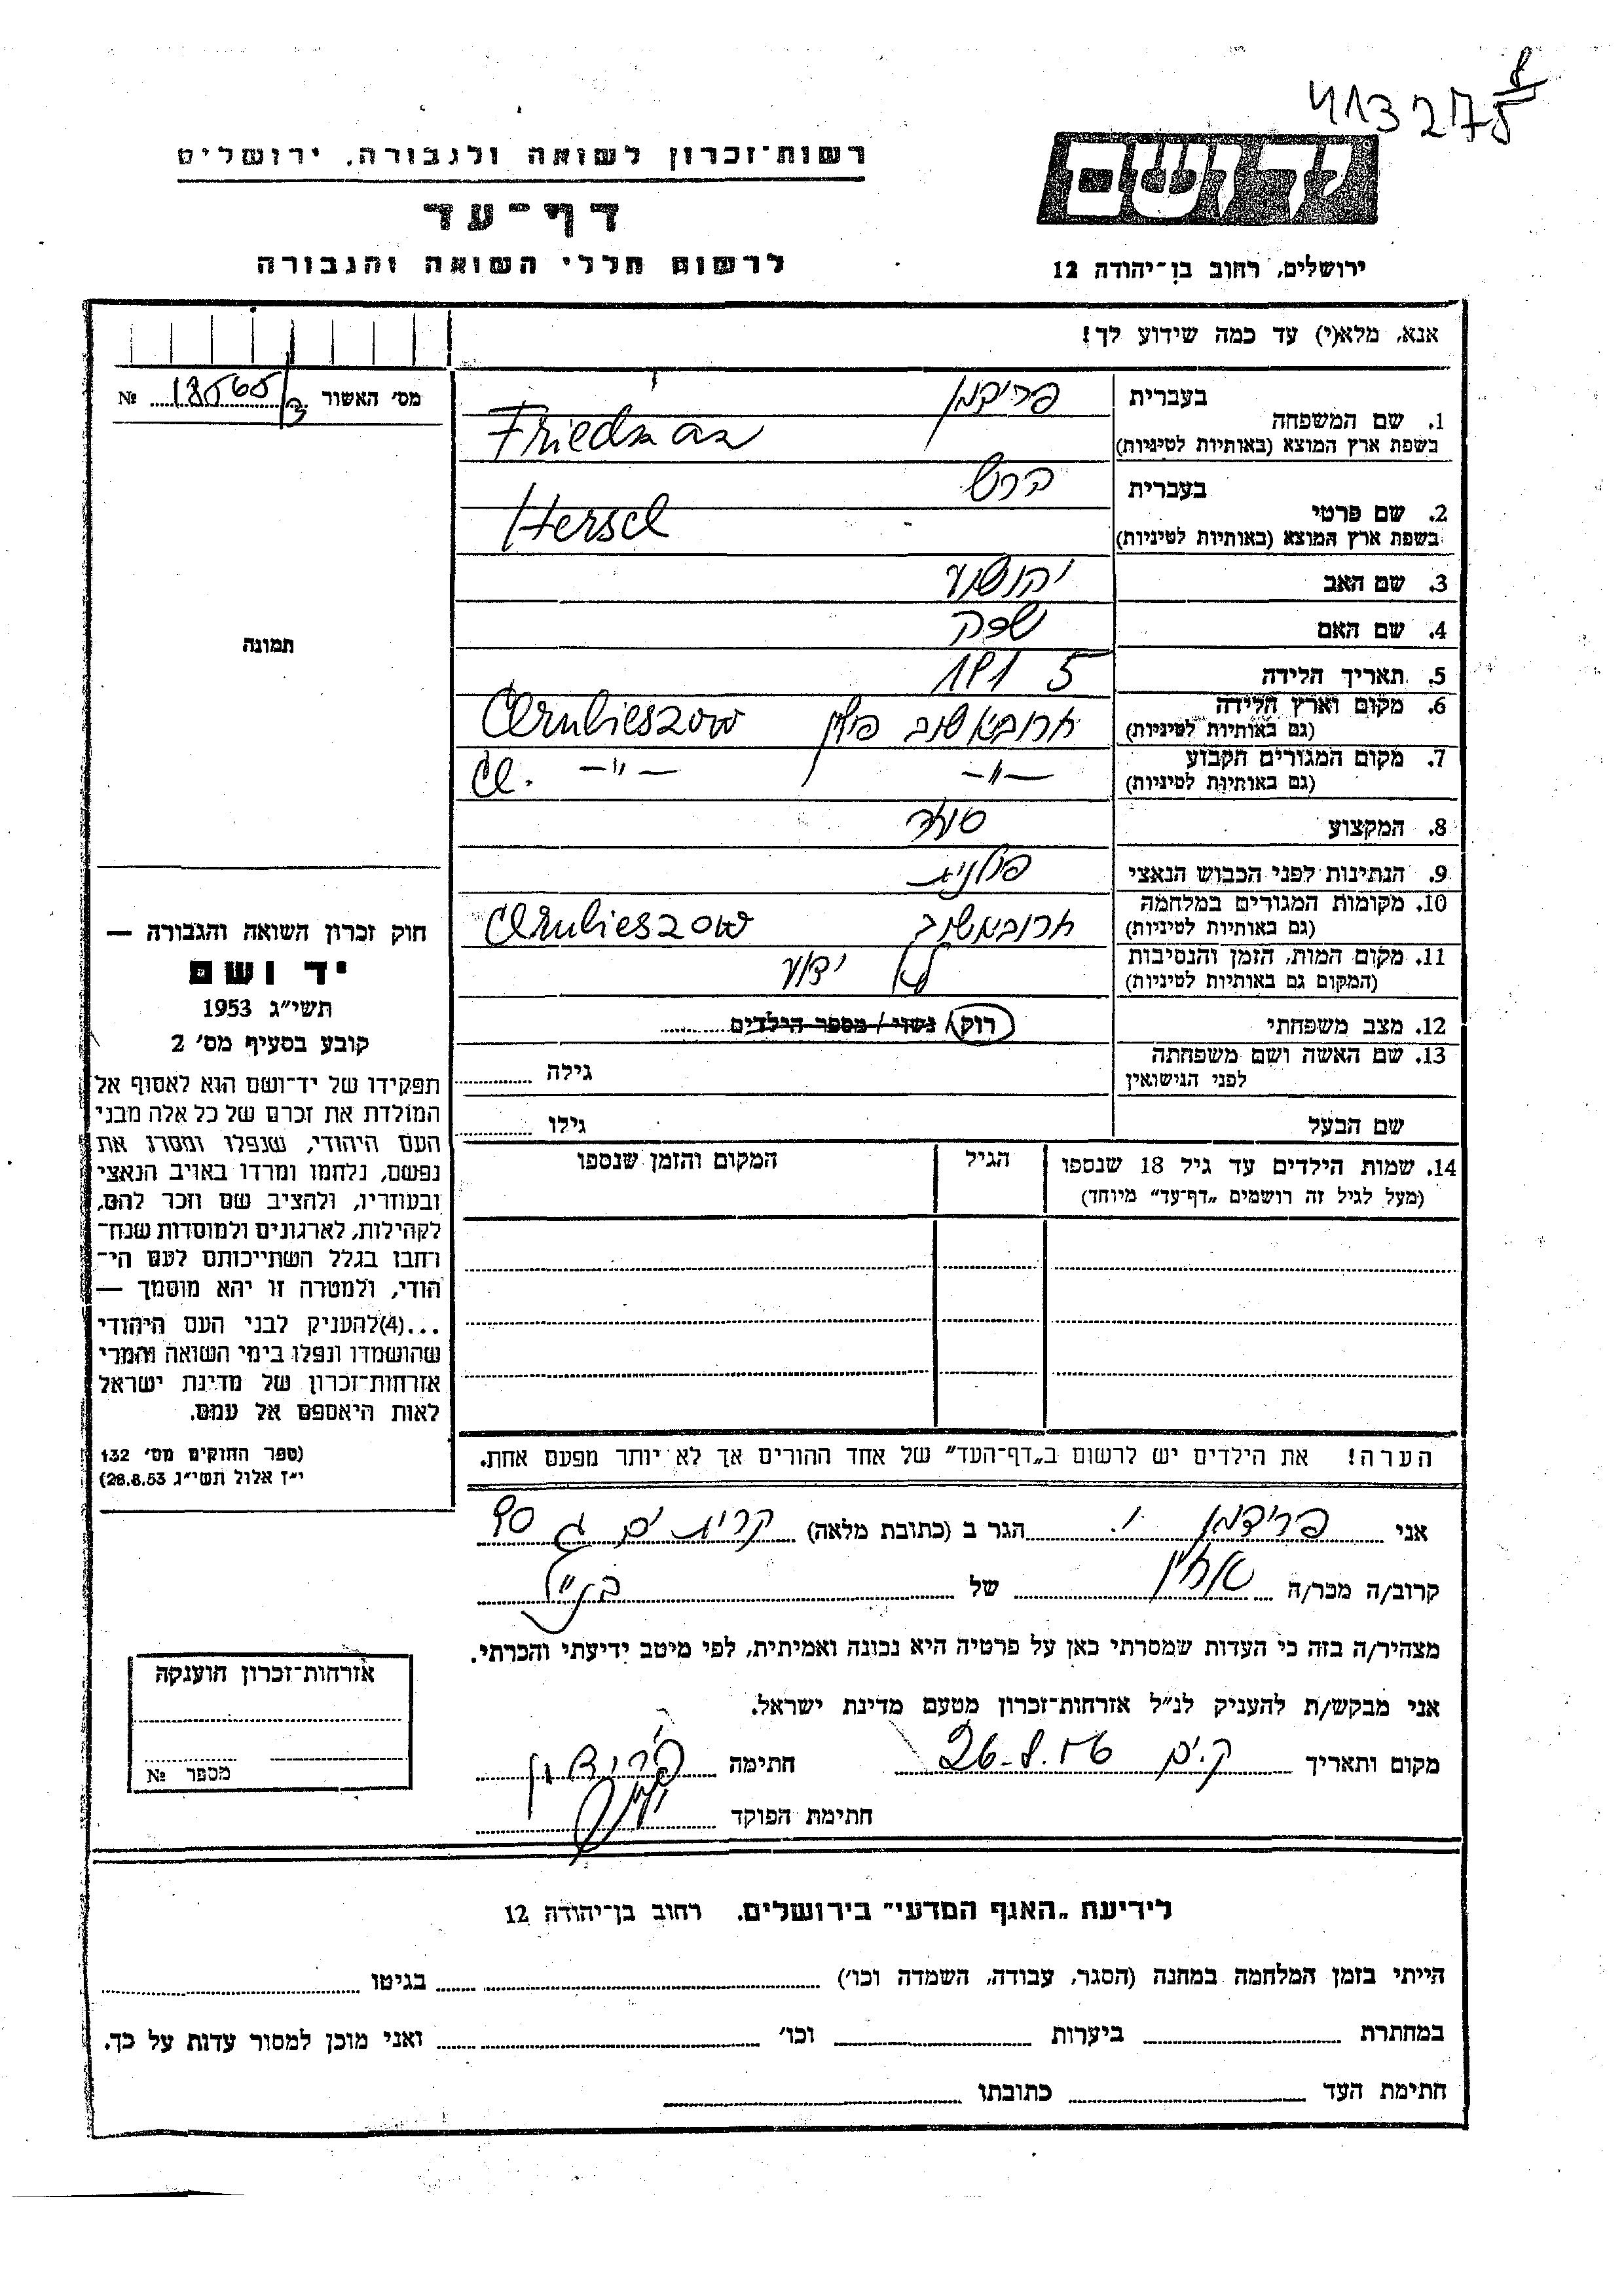 413275
רשות-זכרון לשואה ולגבורה, ירושלים
דף-עד
לרשום חללי השואה והגבורה
יד ושם
ירושלים, רחוב בן-יהודה 12
אנא, מלא(י) עד כמה שידוע לך!
מס' האשור № 18565/3
1. שם המשפחה
בעברית פרידמן
בשפת ארץ המוצא (באותיות לטיניות) Friedman
2. שם פרטי
בעברית הרש
בשפת ארץ המוצא (באותיות לטיניות) Hersch
3. שם האב יהושע
4. שם האם שרה
5. תאריך הלידה 1915
6. מקום וארץ הלידה חרוביאשוב פולין Chrubieszow
(גם באותיות לטיניות)
7. מקום המגורים הקבוע —״— Ch. —״—
(גם באותיות לטיניות)
8. המקצוע סוחר
9. הנתינות לפני הכבוש הנאצי פולנית
10. מקומות המגורים במלחמה חרוביאשוב Chrubieszow
(גם באותיות לטיניות)
11. מקום המות, הזמן והנסיבות לא ידוע
(המקום גם באותיות לטיניות)
12. מצב משפחתי רוק / נשוי / מספר הילדים
13. שם האשה ושם משפחתה גילה
לפני הנישואין
שם הבעל גילו
14. שמות הילדים עד גיל 18 שנספו הגיל המקום והזמן שנספו
(מעל לגיל זה רושמים „דף-עד״ מיוחד)
הערה! את הילדים יש לרשום ב„דף-העד״ של אחד ההורים אך לא יותר מפעם אחת.
תמונה
חוק זכרון השואה והגבורה —
יד ושם
תשי״ג 1953
קובע בסעיף מס' 2
תפקידו של יד-ושם הוא לאסוף אל
המולדת את זכרם של כל אלה מבני
העם היהודי, שנפלו ומסרו את
נפשם, נלחמו ומרדו באויב הנאצי
ובעוזריו, ולהציב שם וזכר להם,
לקהילות, לארגונים ולמוסדות שנח-
רבו בגלל השתייכותם לעם הי-
הודי, ולמטרה זו יהא מוסמך —
...(4)להעניק לבני העם היהודי
שהושמדו ונפלו בימי השואה והמרי
אזרחות-זכרון של מדינת ישראל
לאות היאספם אל עמם.
(ספר החוקים מס' 132
י״ז אלול תשי״ג 28.8.53)
אני פרידמן י. הגר ב (כתובת מלאה) קרית ים ג 90
קרוב/ה מכר/ה אחין של הנ״ל
מצהיר/ה בזה כי העדות שמסרתי כאן על פרטיה היא נכונה ואמיתית, לפי מיטב ידיעתי והכרתי.
אני מבקש/ת להעניק לנ״ל אזרחות-זכרון מטעם מדינת ישראל.
מקום ותאריך ק. ים 26.8.56 חתימה פרידמן
חתימת הפוקד
אזרחות-זכרון הוענקה
מספר №
לידיעת „האגף המדעי״ בירושלים. רחוב בן-יהודה 12
הייתי בזמן המלחמה במחנה (הסגר, עבודה, השמדה וכו') בגיטו
במחתרת ביערות וכו' ואני מוכן למסור עדות על כך.
חתימת העד כתובתו